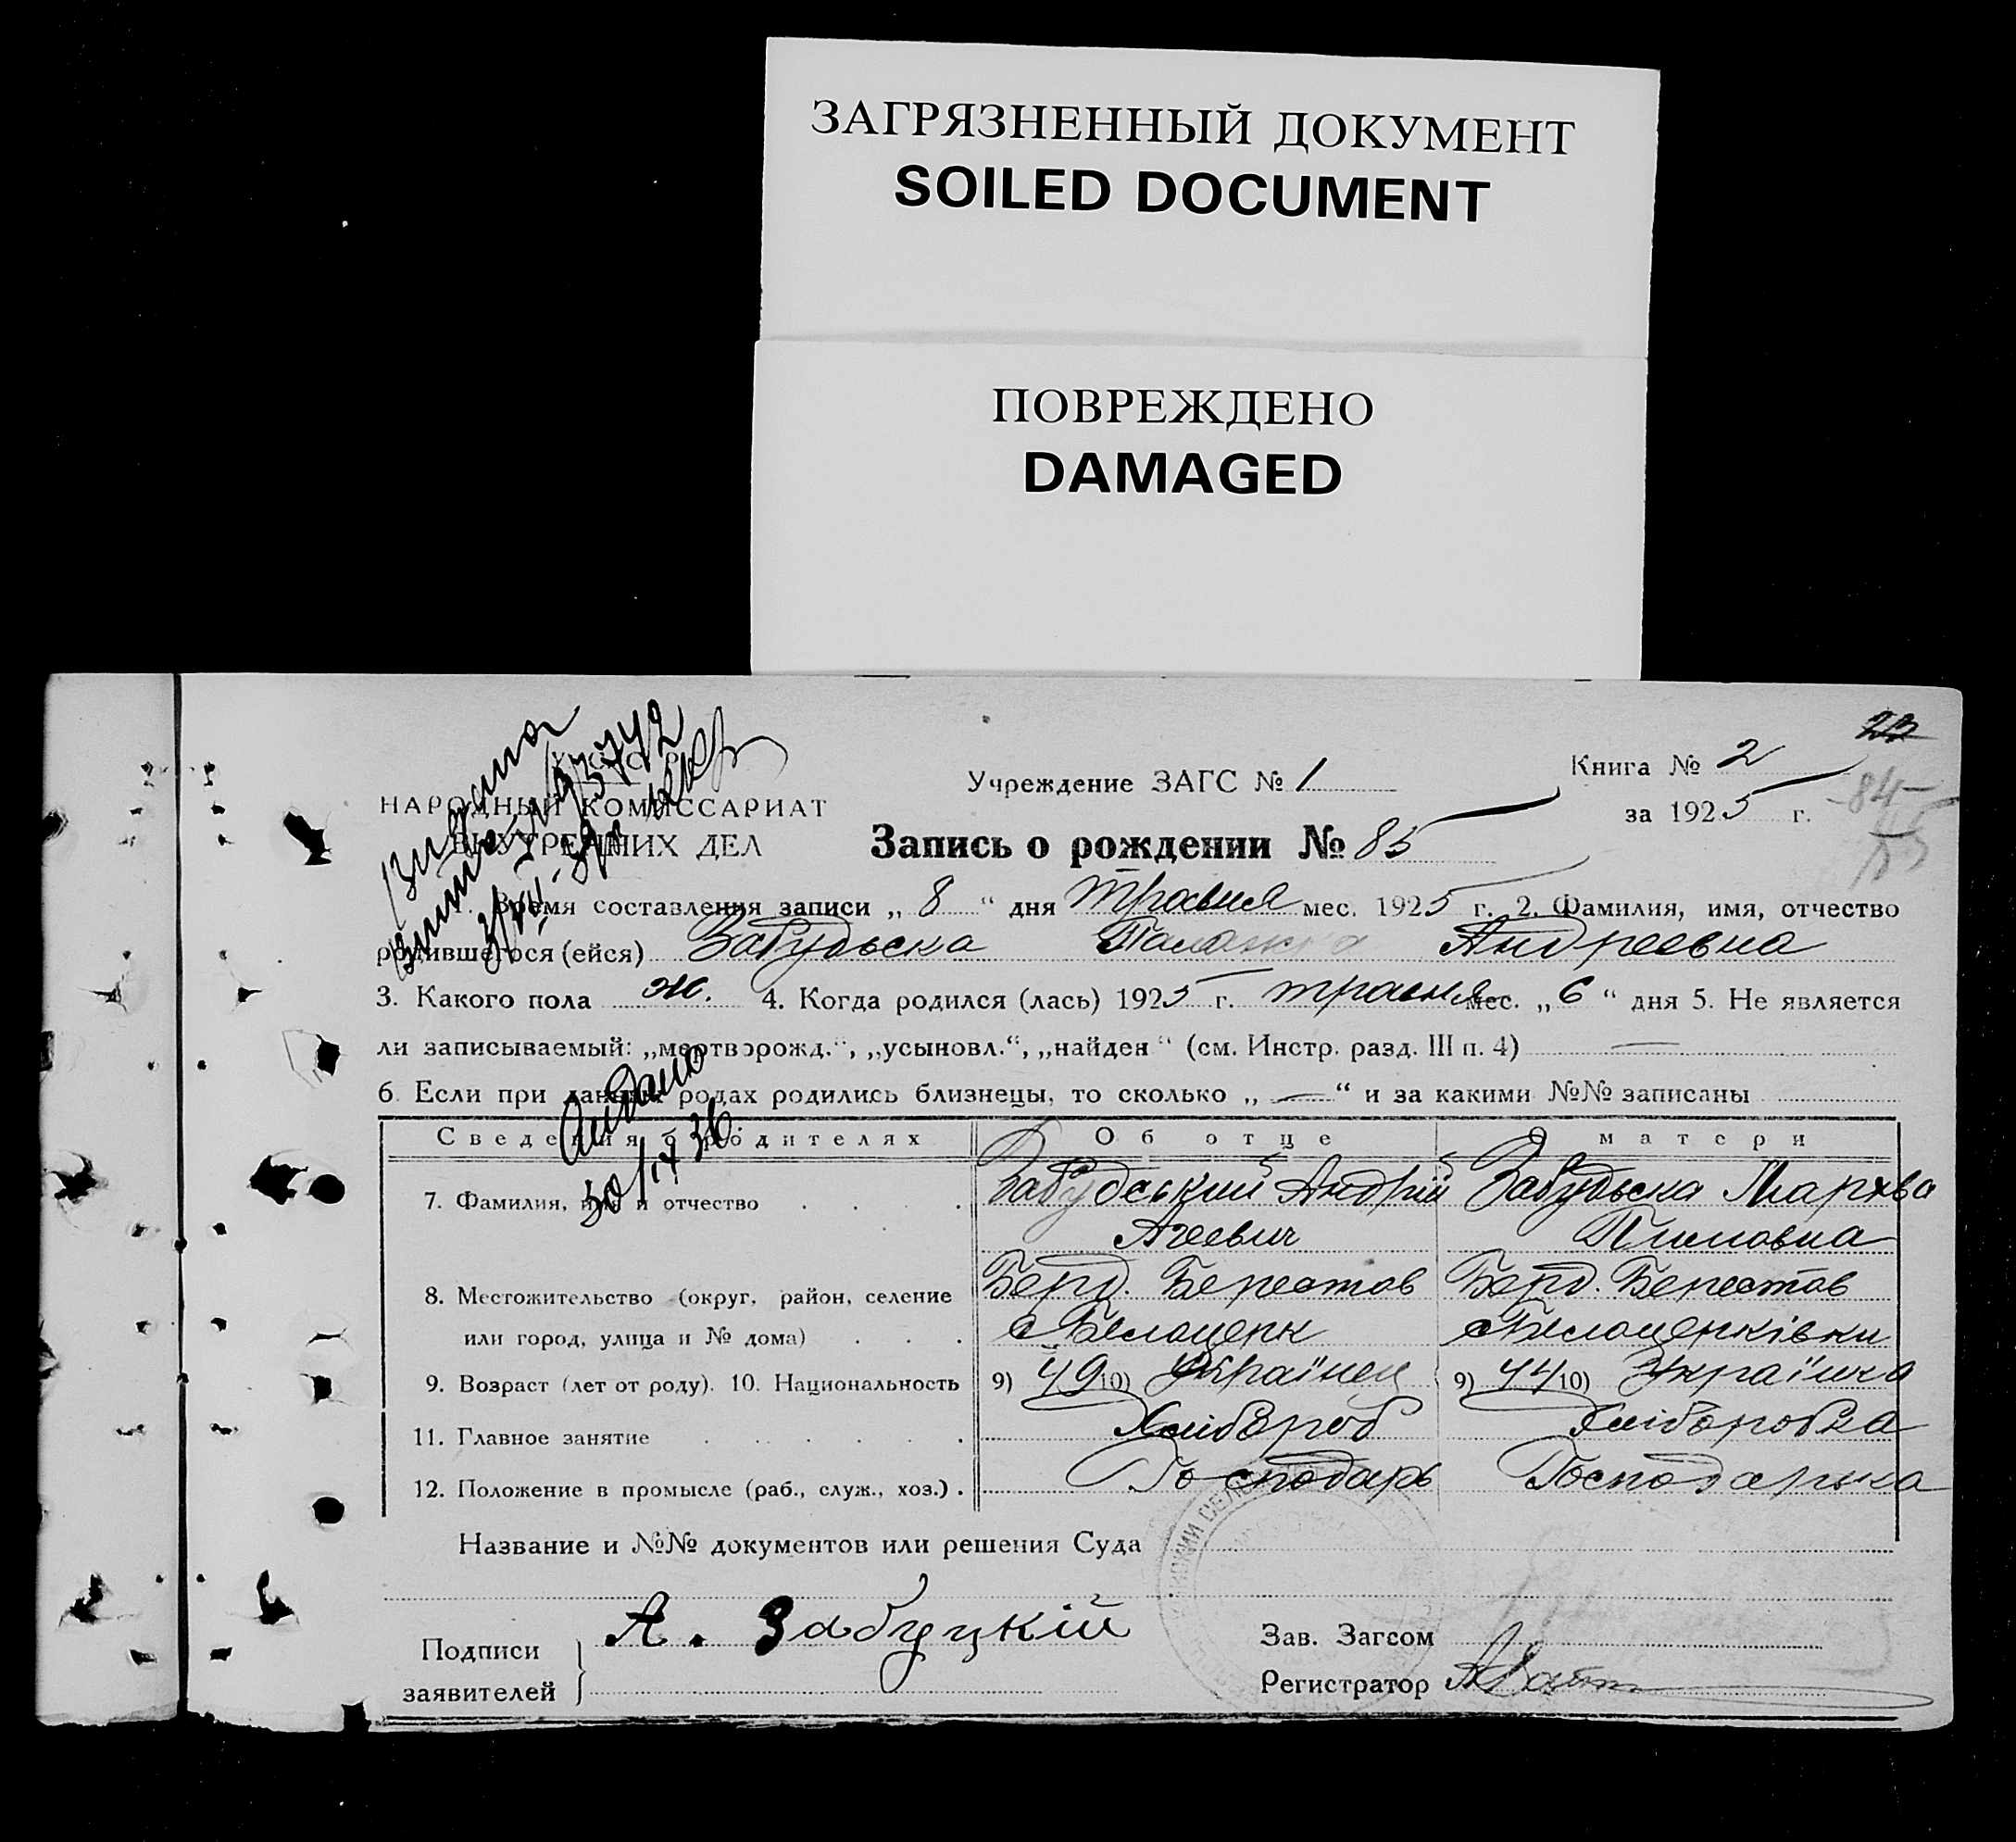 ЗАГРЯЗНЕННЫЙ ДОКУМЕНТ
SOILED DOCUMENT
ПОВРЕЖДЕНО
DAMAGED
Книга № 2
Учреждение ЗАГС № 1
за 1925 г.
НАРОДНЫЙ КОМИССАРИАТ
ВНУТРЕННИХ ДЕЛ
Запись о рождении № 85
1. Время составления записи „ 8 “ дня Травня мес. 1925 г. 2. Фамилия, имя, отчество
родившегося (ейся) Забудьска Андреевна
3. Какого пола ж. 4. Когда родился (лась) 1925 г. травня мес. „ 6 “ дня 5. Не является
ли записываемый: „мертворожд.“, „усыновл.“, „найден“ (см. Инстр. разд. III п. 4) —
6. Если при данных родах родились близнецы, то сколько „ — “ и за какими №№ записаны
Сведения о родителях Об отце О матери
7. Фамилия, имя и отчество Забудський Андрій Забудьска Мархва
Агеевич Пимовна
8. Местожительство (округ, район, селение Берд. Берестов Берд. Берестов
или город, улица и № дома) с Белоцерк с Белоцерківки
9. Возраст (лет от роду). 10. Национальность 9) 49 10) Українец 9) 44 10) Українка
11. Главное занятие Хлібороб Хліборобка
12. Положение в промысле (раб., служ., хоз.) Господарь Господарька
Название и №№ документов или решения Суда
Подписи заявителей А. Забуцкій
Зав. Загсом
Регистратор